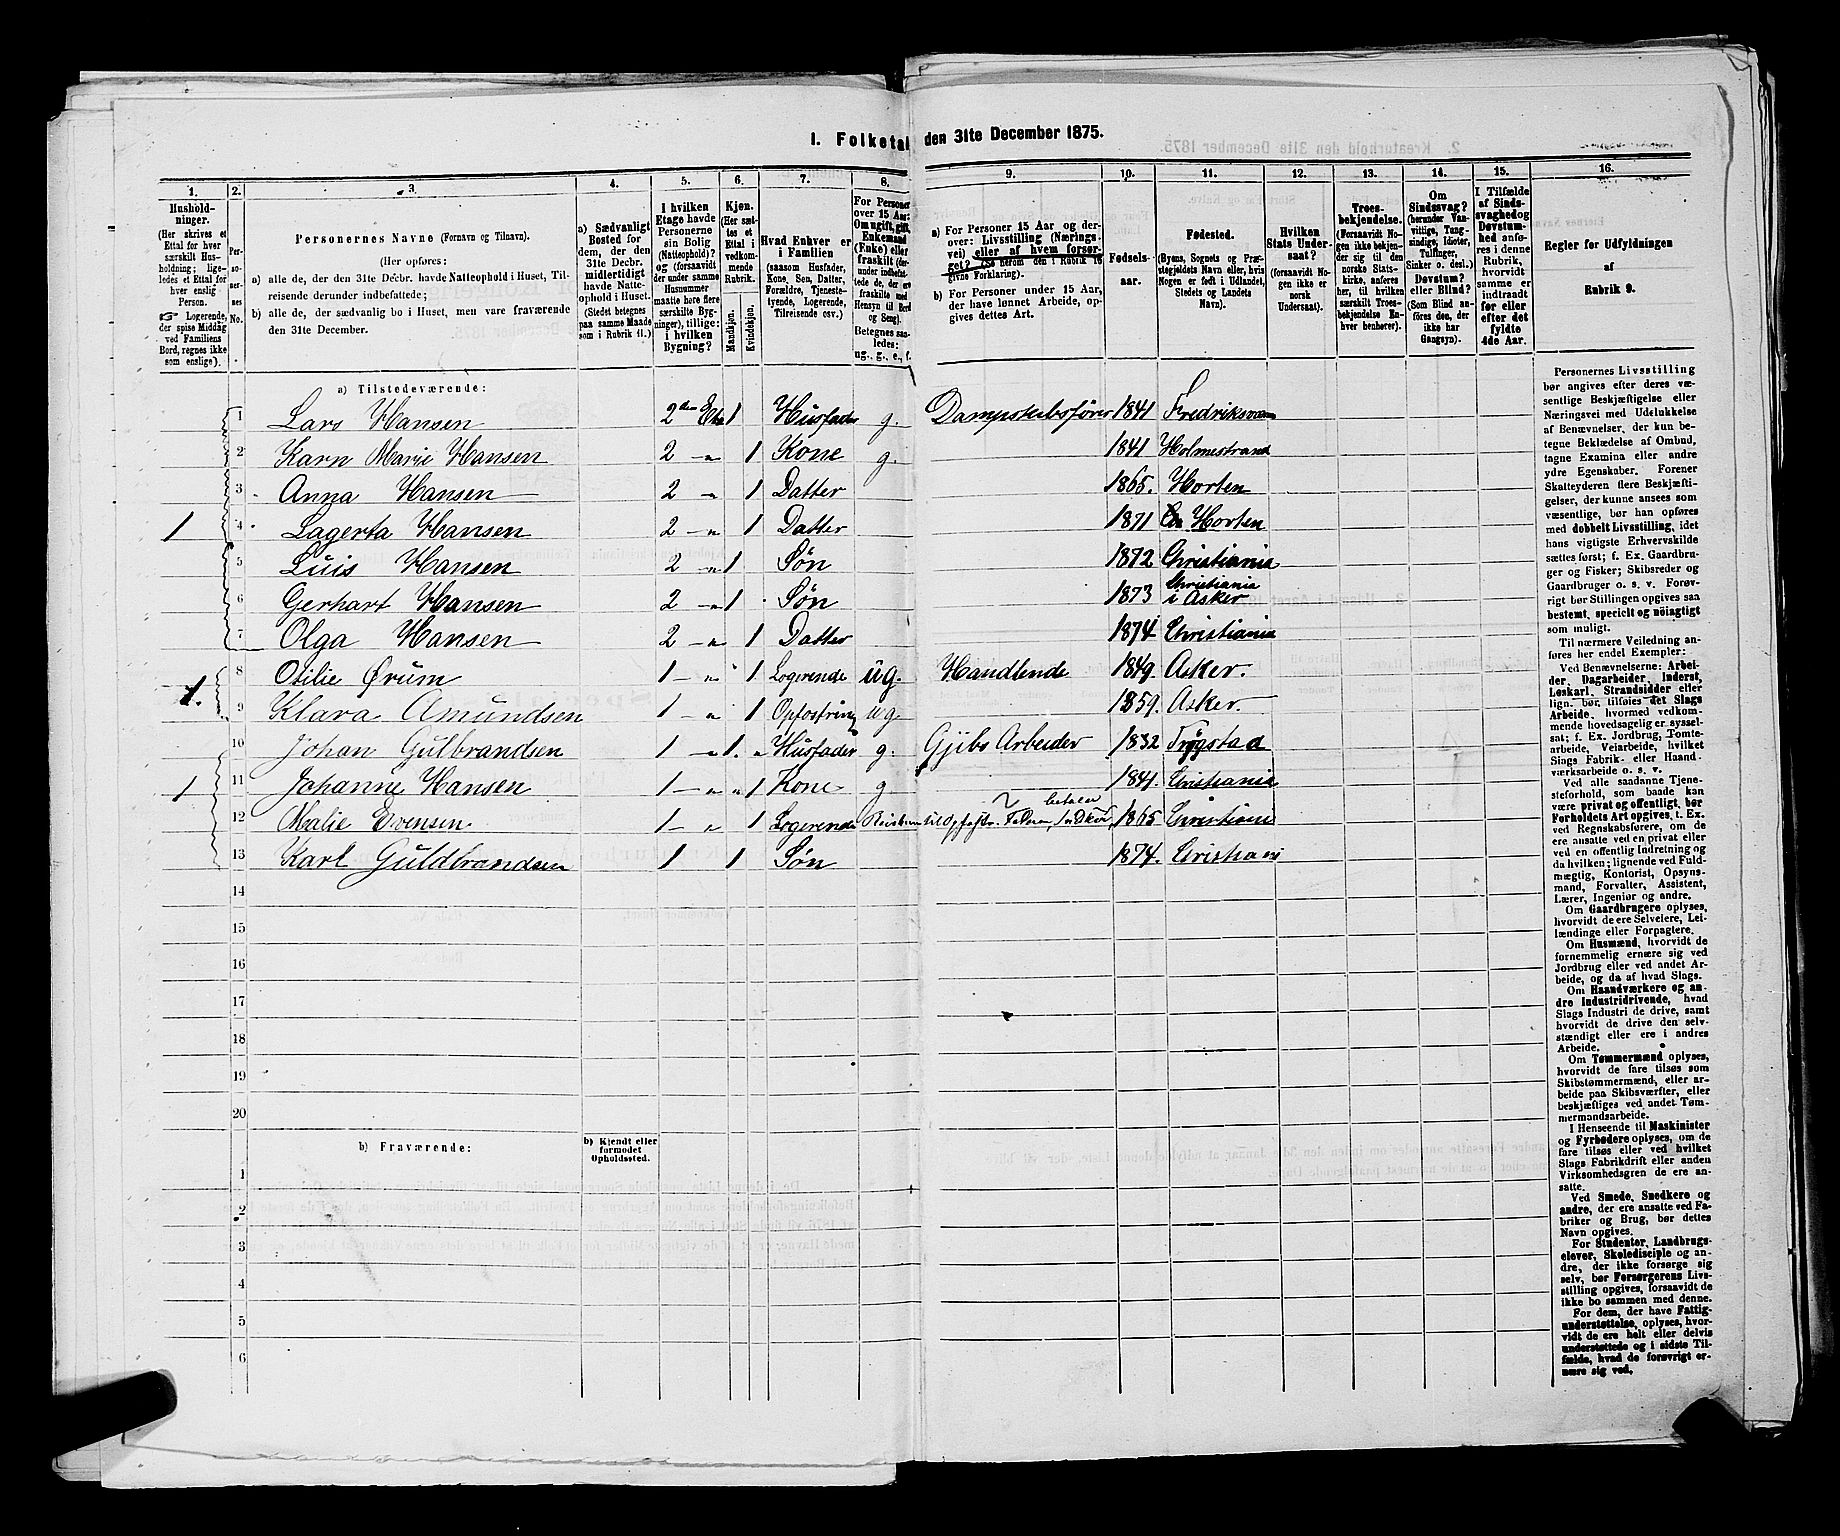 I. Folketal den 31te December 1875.
1. 2. 3. 4. 5. 6. 7. 8. 9. 10. 11. 12. 13. 14. 15. 16.
Husholdninger.
(Her skrives et Ettal for hver særskilt Husholdning; ligeledes et Ettal for hver enslig Person.
☞ Logerende, der spise Middag ved Familiens Bord, regnes ikke som enslige).
Personernes No.
Personernes Navne (Fornavn og Tilnavn).
(Her opføres:
a) alle de, der den 31te Decbr. havde Natteophold i Huset, Tilreisende derunder indbefattede;
b) alle de, der sædvanlig bo i Huset, men vare fraværende den 31te December.
a) Sædvanligt Bosted for dem, der den 31te Decbr. midlertidigt havde Natteophold i Huset. (Stedet betegnes paa samme Maade som i Rubrik 11.)
I hvilken Etage havde Personerne sin Bolig (Natteophold)? og (forsaavidt der under samme Husnummer maatte høre flere særskilte Bygninger), tillige: i hvilken Bygning?
Kjøn.
(Her sættes et Ettal i vedkommende Rubrik.
Mandkjøn. Kvindekjøn.
Hvad Enhver er i Familien
(saasom Husfader, Kone, Søn, Datter, Forældre, Tjenestetyende, Logerende, Tilreisende osv.)
For Personer over 15 Aar: Om ugift, gift, Enkemand (Enke) eller fraskilt
Betegnes saaledes: ug., g., e., f.
a) For Personer 15 Aar og derover: Livsstilling (Næringsvei) eller af hvem forsørget? (Se herom den i Rubrik 16 givne Forklaring).
b) For Personer under 15 Aar, der have lønnet Arbeide, opgives dettes Art.
Fødselsaar.
Fødested.
(Byens, Sognets og Præstegjeldets Navn eller, hvis Nogen er født i Udlandet, Stedets og Landets Navn).
Hvilken Stats Undersaat?
(forsaavidt Nogen ikke er norsk Undersaat).
Troesbekjendelse.
(Forsaavidt Nogen ikke bekjender sig til den norske Statskirke, anføres her, til hvilken særskilt Troesbekjendelse Enhver benhører).
Om Sindssvag? (herunder Vanvittige, Tungsindige, Idioter, Tullinger, Sinker o. desl.) Døvstum? eller Blind? (Som Blind anføres den, der ikke har Gangsyn).
I Tilfælde af Sindssvaghed og Døvstumhed anføres i denne Rubrik, hvorvidt samme er indtraadt før eller efter det fyldte 4de Aar.
Regler for Udfyldningen af Rubrik 9.
a) Tilstedeværende:
1 Lars Hansen 2den Eta 1 Husfader g. Dampskibsfører 1841 Fredriksværn
2 Karn Marie Hansen 2 - „ 1 Kone g. 1841 Holmestrand
3 Anna Hansen 2 - „ 1 Datter 1865. Horten
1 4 Lagerta Hansen 2 - „ 1 Datter 1871 Horten
5 Luis Hansen 2 - „ 1 Søn 1872 Christiania
6 Gerhart Hansen 2 - „ 1 Søn 1873 Christiania i Asker
7 Olga Hansen 2 - „ 1 Datter 1874 Christiania
8 Otilie Ørum 1 - „ 1 Logerende ug. Handlende 1849. Asker.
1. 9 Klara Amundsen 1 - „ 1 ug. 1859. Asker.
10 Johan Gulbrandsen 1 - „ 1. „ Husfader g. Gjibs Arbeider 1832 Trygstad
1 11 Johanne Hansen 1 - „ „ 1 Kone g 1841. Cristiania
12 Malie Evensen 1 - „ 1 Logerende betaler 1865 Cristiania
13 Karl Guldbrandsen 1 1 Søn 1874. Cristiani
14
15
16
17
18
19
20
b) Fraværende:
b) Kjendt eller formodet Opholdssted.
1
2
3
4
5
6
Personernes Livsstilling bør angives efter deres væsentlige Beskjæftigelse eller Næringsvei med Udelukkelse af Benævnelser, der kun betegne Beklædelse af Ombud, tagne Examina eller andre ydre Egenskaber. Forener Skatteyderen flere Beskjæftigelser, der kunne ansees som væsentlige, bør han opføres med dobbelt Livsstilling, idet hans vigtigste Erhvervskilde sættes først; f. Ex. Gaardbruger og Fisker; Skibsreder og Gaardbruger o. s. v. Forøvrigt bør Stillingen opgives saa bestemt, specielt og nøiagtig som muligt.
Til nærmere Veiledning anføres her endel Exempler:
Ved Benævnelserne: Arbeider, Dagarbeider, Inderst, Løskarl, Strandsidder eller lign. bør, tilføies det Slags Arbeide, hvormed vedkommende hovedsagelig er sysselsat; f. Ex. Jordbrug, Tomtearbeide, Veiarbeide, hvilket Slags Fabrik- eller Haandværksarbeide o. s. v.
Ved alle saadanne Tjenesteforhold, som baade kan være privat og offentligt, bør Forholdets Art opgives, t. Ex. ved Regnskabsførere, om de ere ansatte ved en privat eller ved en offentlig Indretning og da hvilken; lignende ved Fuldmægtig, Kontorist, Opsynsmand, Forvalter, Assistent, Lærer, Ingeniør og andre.
Om Gaardbrugere oplyses, hvorvidt de ere Selveiere, Leilændinge eller Forpagtere.
Om Husmænd, hvorvidt de fornemmelig ernære sig ved Jordbrug eller ved andet Arbeide, og da af hvad Slags.
Om Haandværkere og andre Industridrivende, hvad Slags Industri de drive, samt hvorvidt de drive den selvstændigt eller ere i andres Arbeide.
Om Tømmermænd oplyses, hvorvidt de fare tilsøs som Skibstømmermænd, eller arbeide paa Skibsværfter, eller beskjæftiges ved andet Tømmermandsarbeide.
I Henseende til Maskinister og Fyrbødere oplyses, om de fare tilsøs eller ved hvilket Slags Fabrikdrift eller anden Virksomhedsgren de ere ansatte.
Ved Smede, Snedkere og andre, der ere ansatte ved Fabriker og Brug, bør dettes Navn opgives.
For Studenter, Landbrugselever, Skoledisciple og andre, der ikke forsørge sig selv, bør Forsørgerens Livsstilling opgives, forsaavidt de ikke bo sammen med denne.
For dem, der have Fattigunderstøttelse, oplyses, hvorvidt de ere helt eller delvis understøttede og i sidste Tilfælde, hvad de forøvrigt ernære sig ved.